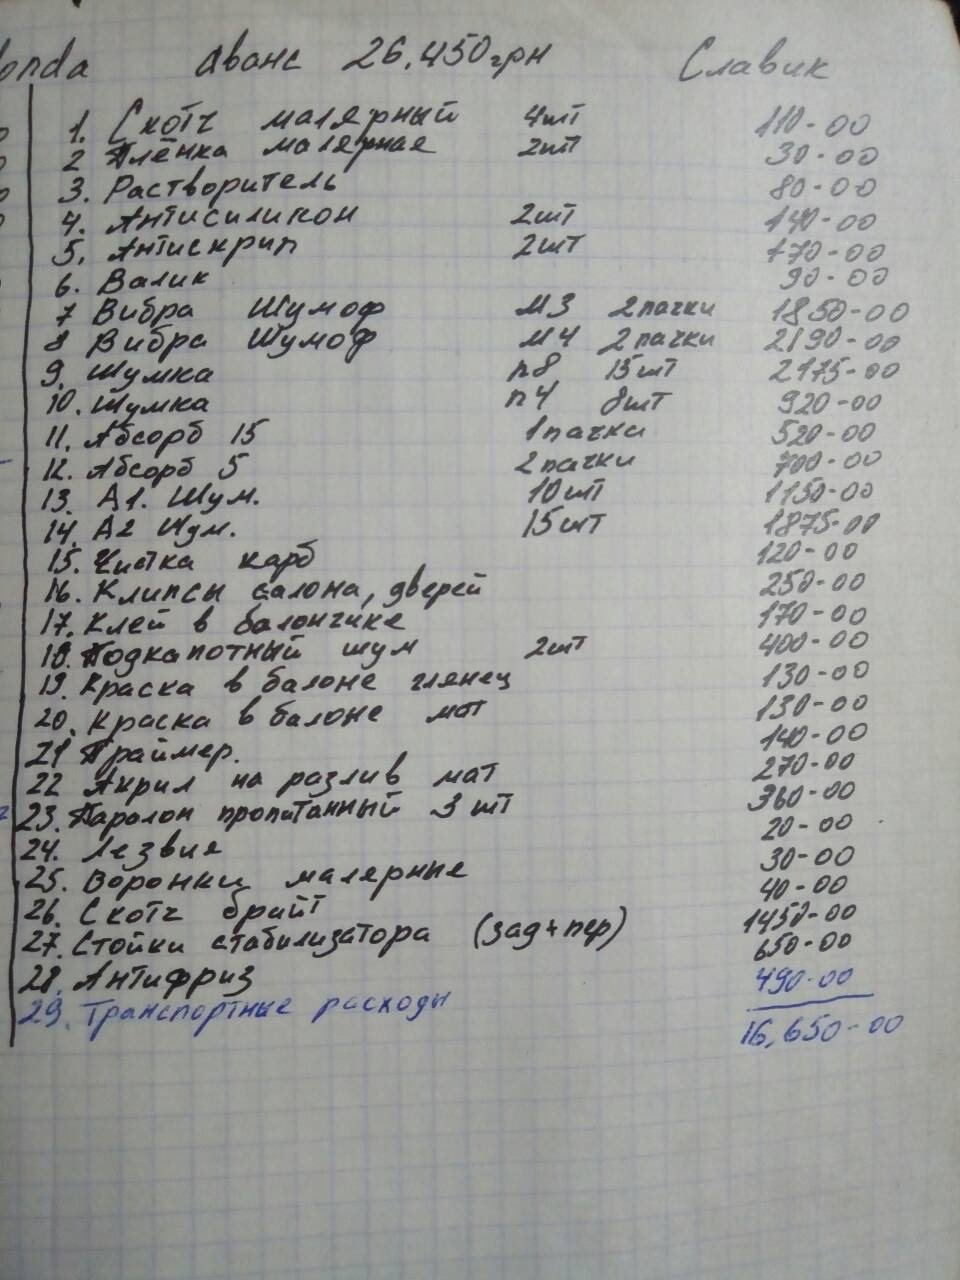 onda аванс 26.450грн Славик
1. Скотч малярный 4шт 110-00
2 Плёнка малярная 2шт 30-00
3. Растворитель 80-00
4. Антисиликон 2шт 140-00
5. Антискрип 2шт 170-00
6. Валик 90-00
7 Вибра Шумоф М3 2пачки 1850-00
8 Вибра Шумоф М4 2пачки 2190-00
9. Шумка п8 15шт 2175-00
10. Шумка п4 8шт 920-00
11. Абсорб 15 1пачка 520-00
12. Абсорб 5 2пачки 700-00
13. А1. Шум. 10шт 1150-00
14. А2 Шум. 15шт 1875-00
15. Чистка карб 120-00
16. Клипсы салона, дверей 250-00
17. Клей в балончике 170-00
18. Подкапотный шум 2шт 400-00
19. Краска в балоне глянец 130-00
20. Краска в балоне мат 130-00
21 Праймер. 140-00
22 Акрил на разлив мат 270-00
23. Паралон пропитанный 3шт 360-00
24. Лезвия 20-00
25. Воронки малярные 30-00
26. Скотч брайт 40-00
27. Стойки стабилизатора (зад+пер) 1450-00
28. Антифриз 650-00
29. Транспортные расходы 490-00
16,650-00